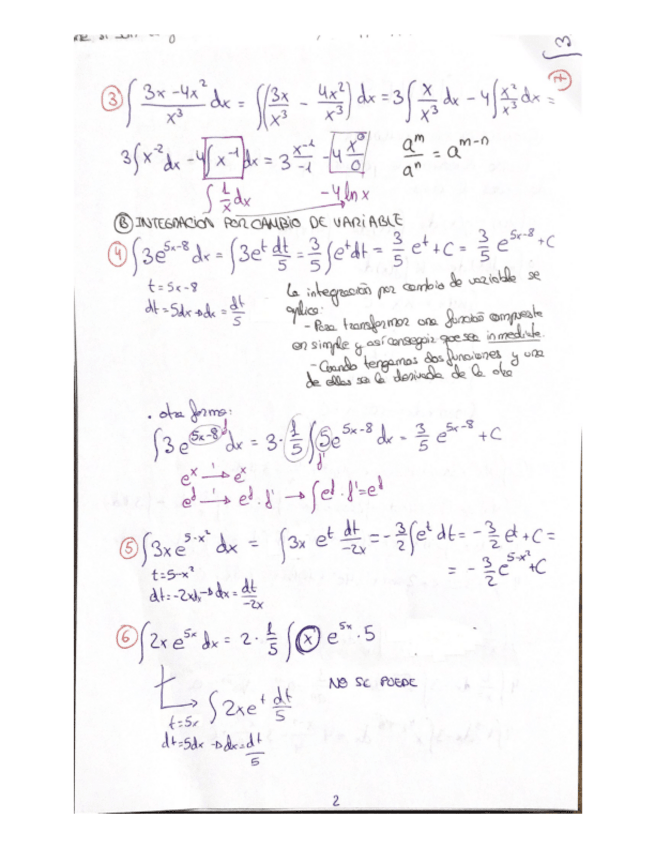 3
③ ∫ (3x - 4x²)/x³ dx = ∫(3x/x³ - 4x²/x³) dx = 3∫ x/x³ dx - 4∫ x²/x³ dx =
3∫x⁻² dx - 4∫ x⁻¹ dx = 3 x⁻¹/-1 - 4 x⁰/0
aᵐ/aⁿ = aᵐ⁻ⁿ
∫ 1/x dx → -4 ln x
Ⓑ INTEGRACION POR CAMBIO DE VARIABLE
④ ∫3e^(5x-8) dx = ∫3e^t dt/5 = 3/5 ∫e^t dt = 3/5 e^t + C = 3/5 e^(5x-8) + C
t = 5x-8
dt = 5dx → dx = dt/5
La integración por cambio de variable se
aplica:
- Para transformar una función compuesta
en simple y así conseguir que sea inmediata.
- Cuando tengamos dos funciones y una
de ellas sea la derivada de la otra
. otra forma:
∫3e^(5x-8) dx = 3 · 1/5 ∫5e^(5x-8) dx = 3/5 e^(5x-8) + C
f'
e^x →' e^x
e^f →' e^f · f' → ∫e^f · f' = e^f
⑤ ∫3xe^(5-x²) dx = ∫3x e^t dt/-2x = -3/2 ∫e^t dt = -3/2 e^t + C =
= -3/2 e^(5-x²) + C
t = 5-x²
dt = -2xdx → dx = dt/-2x
⑥ ∫2xe^(5x) dx = 2 · 1/5 ∫ x e^(5x) · 5
NO SE PUEDE
∫ 2xe^t dt/5
t = 5x
dt = 5dx → dx = dt/5
2